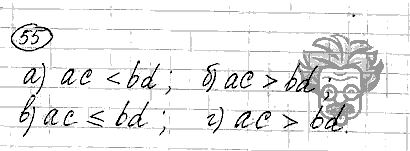 55
а) ac < bd; б) ac > bd;
в) ac ≤ bd; г) ac > bd.